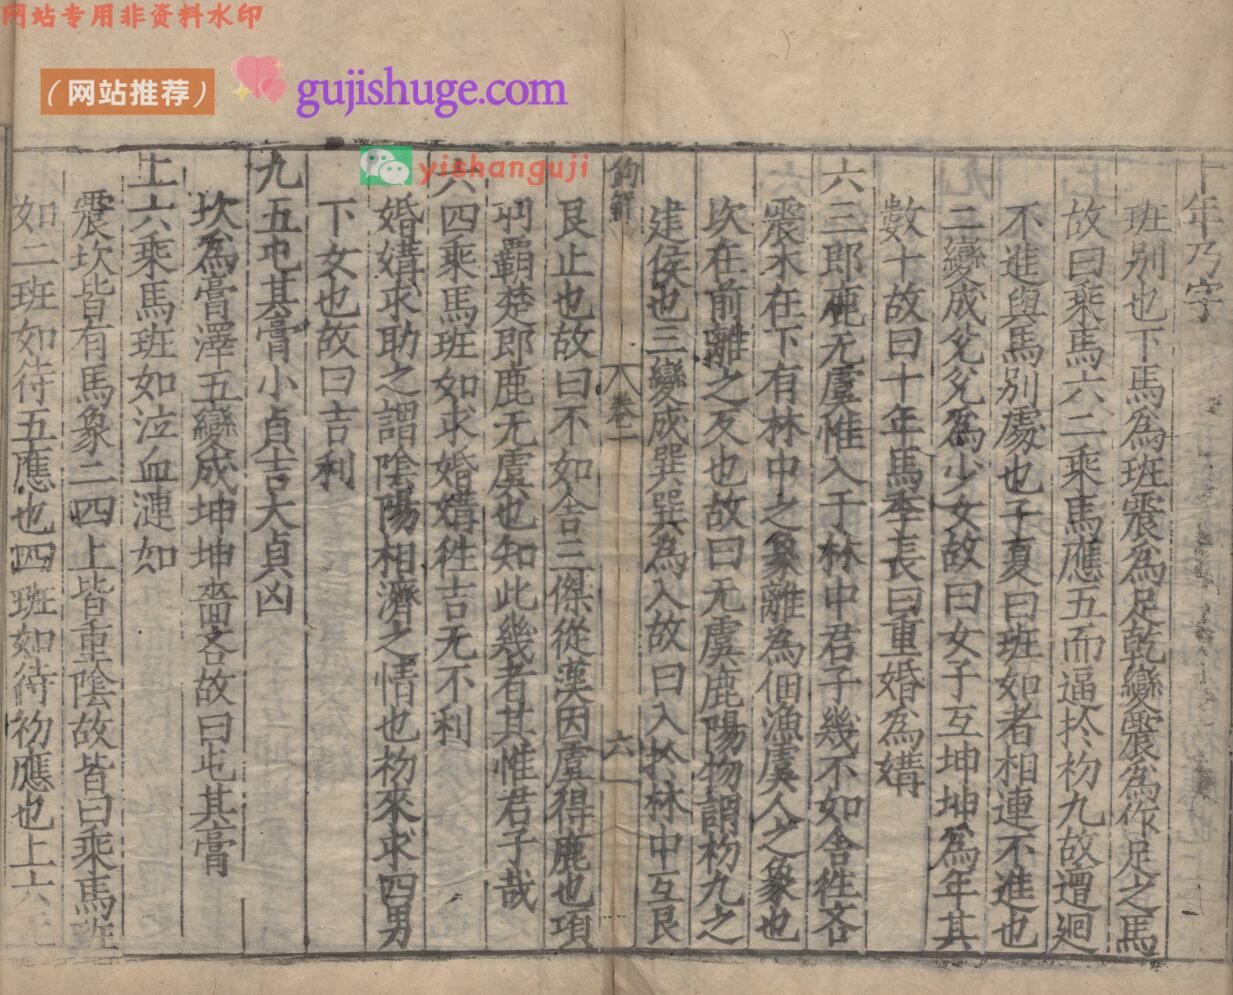 网站专用非资料水印
（网站推荐）
gujishuge.com
yishanguji
十年乃字
班别也下馬為班震為足乾變震為作足之馬
故曰乘馬六二乘馬應五而逼於初九故邅迴
不進與馬别處也子夏曰班如者相連不進也
二變成兊兊為少女故曰女子互坤坤為年其
數十故曰十年馬季長曰重婚為媾
六三郎鹿无虞惟入于林中君子幾不如舍徃吝
震木在下有林中之象離為佃漁虞人之象也
坎在前離之反也故曰无虞鹿陽物謂初九之
建侯也三變成巽巽為入故曰入於林中互艮
卷一
六
艮止也故曰不如舍三傑從漢因虞得鹿也項
羽霸楚郎鹿无虞也知此幾者其惟君子哉
六四乘馬班如求婚媾徃吉无不利
婚媾求助之謂陰陽相濟之情也初來求四男
下女也故曰吉利
九五屯其膏小貞吉大貞凶
坎為膏澤五變成坤坤嗇吝故曰屯其膏
上六乘馬班如泣血漣如
震坎皆有馬象二四上皆重陰故皆曰乘馬班
如二班如待五應也四班如待初應也上六无